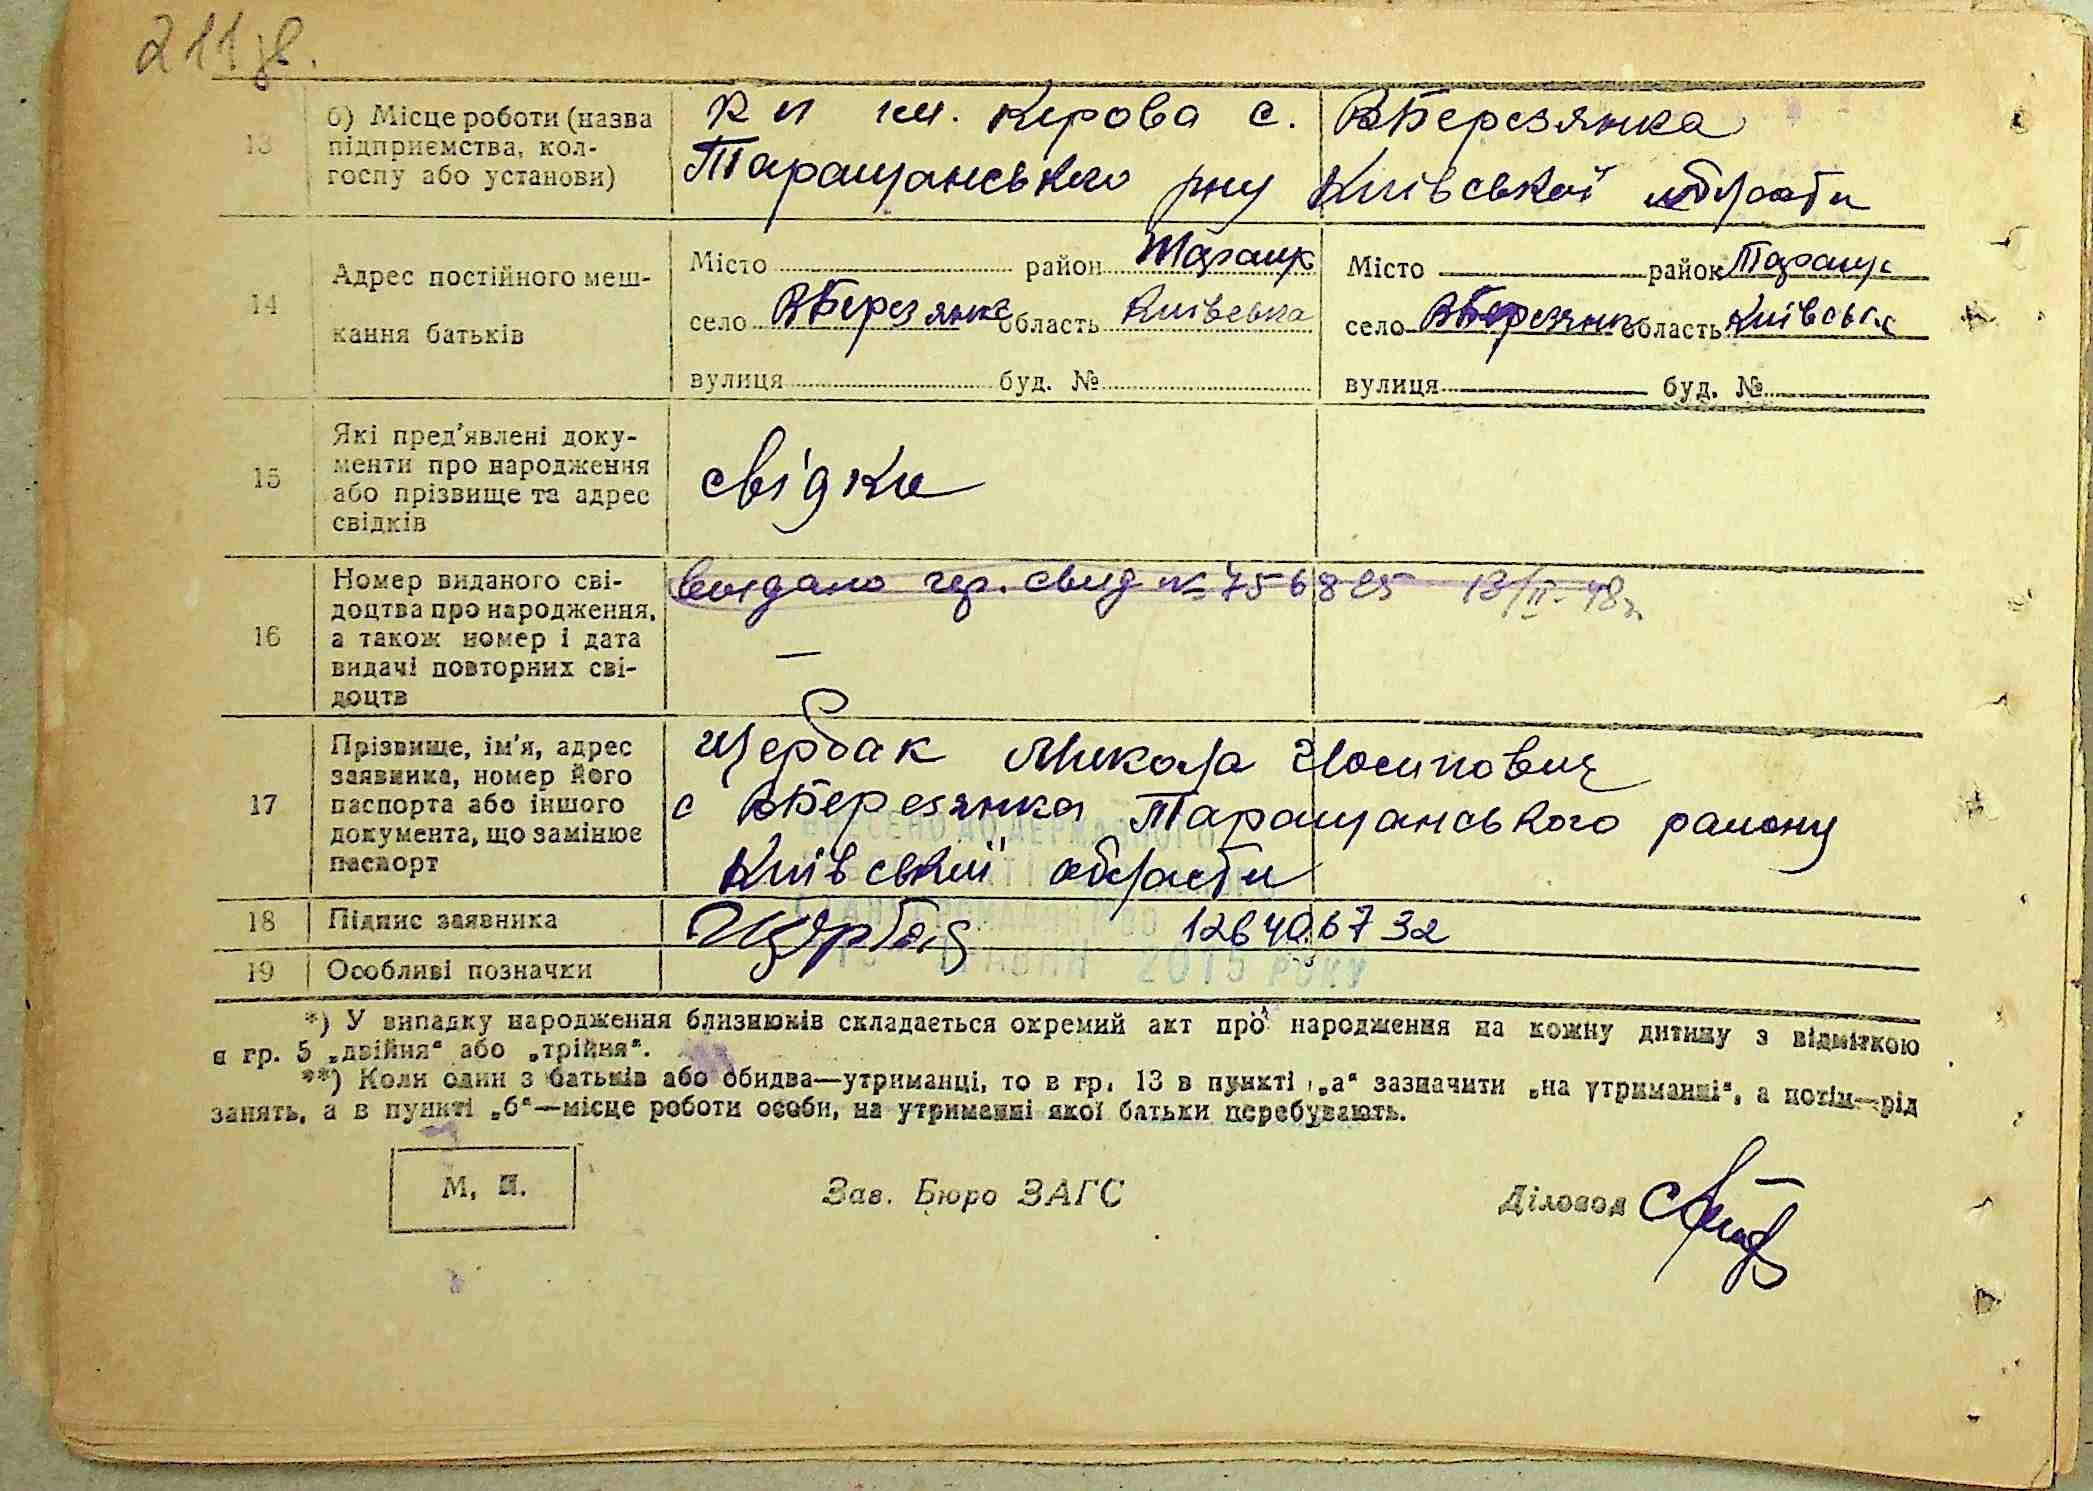 211зв.
13 б) Місце роботи (назва підприємства, колгоспу або установи)
К п ім. Кірова с. ВБерезянка
Таращанського р-ну Київської області
14 Адрес постійного мешкання батьків
Місто район Таращ
село ВБерезянка область Київська
вулиця буд. №
Місто район Таращ
село ВБерезянка область Київська
вулиця буд. №
15 Які пред'явлені документи про народження або прізвище та адрес свідків
свідки
16 Номер виданого свідоцтва про народження, а також номер і дата видачі повторних свідоцтв
13/II-48г.
—
17 Прізвище, ім'я, адрес заявника, номер його паспорта або іншого документа, що замінює паспорт
Щербак Микола Йосипович
с ВБерезянка Таращанського району
Київської області
ВНЕСЕНО ДО ДЕРЖАВНОГО
18 Підпис заявника
Щербак 126406732
ТРАВНЯ 2015 РОКУ
19 Особливі позначки
*) У випадку народження близнюків складається окремий акт про народження на кожну дитину з відміткою
в гр. 5 „двійня“ або „трійня“.
**) Коли один з батьків або обидва—утриманці, то в гр. 13 в пункті „а“ зазначити „на утриманні“, а потім—рід
занять, а в пункті „б“—місце роботи особи, на утриманні якої батьки перебувають.
М. П.
Зав. Бюро ЗАГС
Діловод